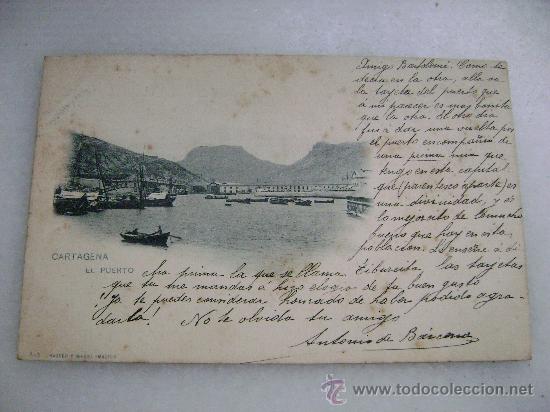 Amigo Bartolomé: Como te
decía en la otra, allá va
la tarjeta del puerto que
á mi parecer es muy bonita
que la otra. El otro día
fui a dar una vuelta por
el puerto en compañía de
una prima mia que
tengo en esta capital
que (parentesco aparte) es
una divinidad, y es
lo mejorcito de lo mucho
bueno que hay en esta
población. Le enseñé á di
CARTAGENA
EL PUERTO
cha prima la que se llama Tiburcita las tarjetas
que tu me mandas é hizo elogio de tu buen gusto
¡Ya te puedes considerar honrado de haber podido agra-
darla! No te olvida tu amigo
Antonio de Bárcena
HAUSER Y MENET.-MADRID
todocoleccion
http://www.todocoleccion.net